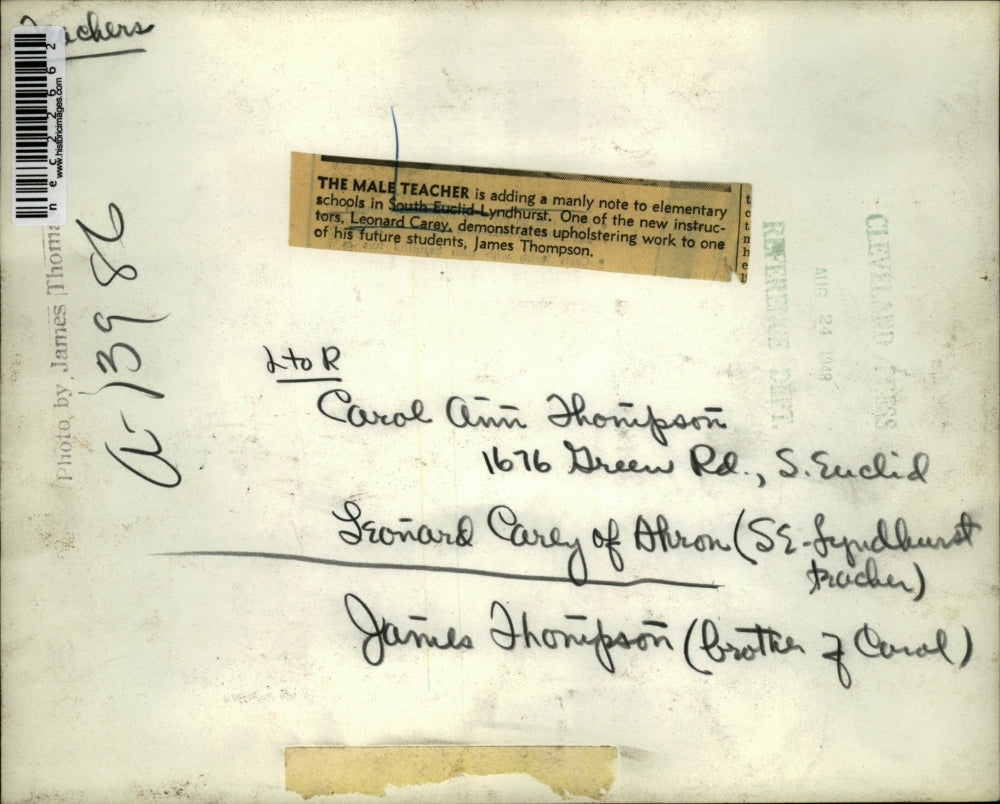 THE MALE TEACHER is adding a manly note to elementary
schools in South Euclid-Lyndhurst. One of the new instruc-
tors, Leonard Carey, demonstrates upholstering work to one
of his future students, James Thompson.
L to R
Carol Ann Thompson
1676 Green Rd., S. Euclid
Leonard Carey of Akron (SE-Lyndhurst
teacher)
James Thompson (brother of Carol)
a-13986
Photo by James Thoma
www.historicimages.com
nec22662
CLEVELAND PRESS
AUG 24 1948
REFERENCE DEPT